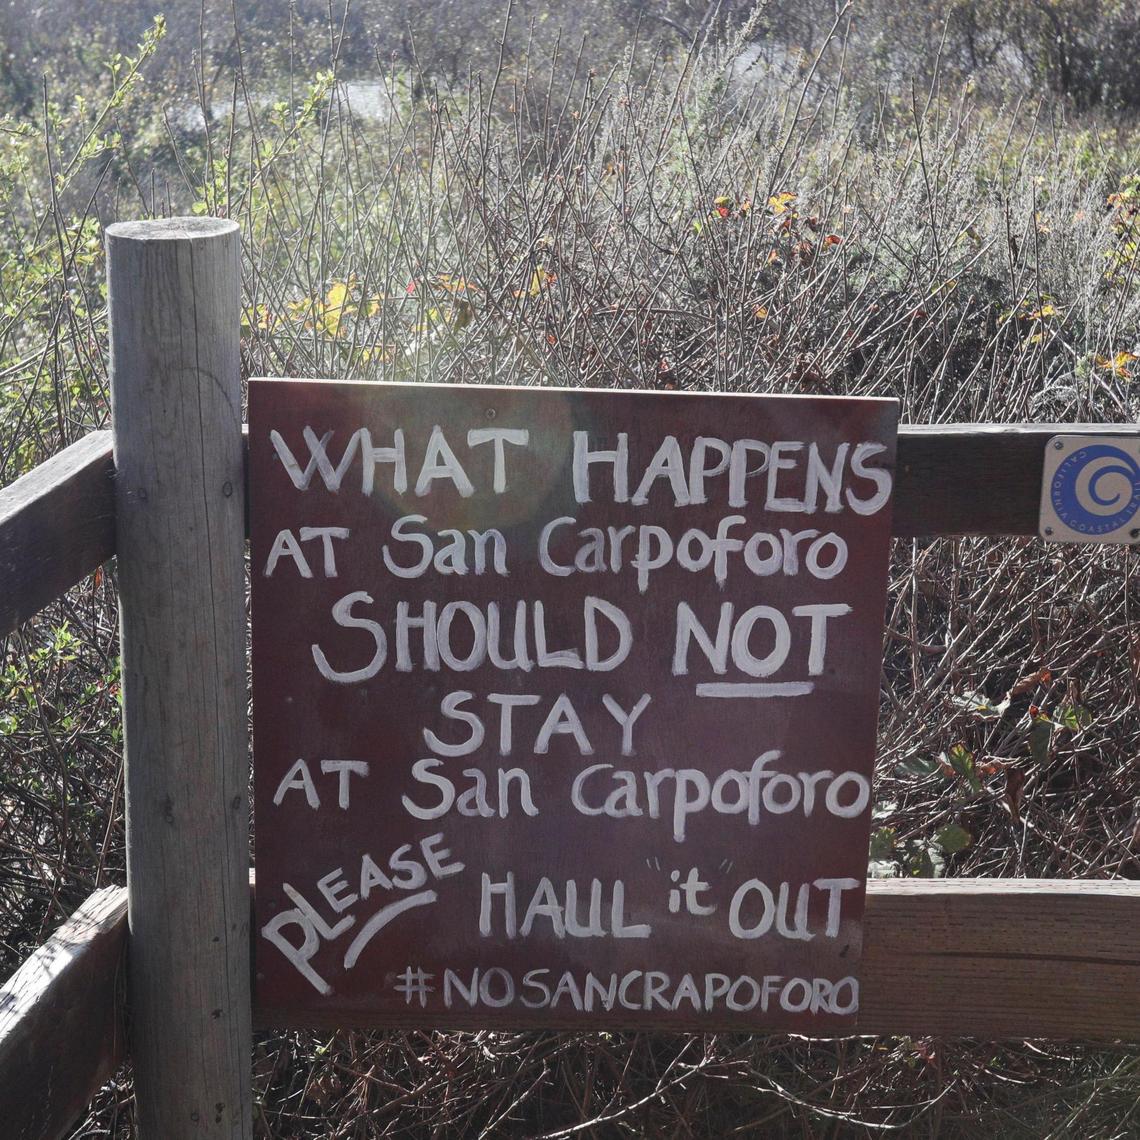 WHAT HAPPENS
AT San Carpoforo
SHOULD NOT
STAY
AT San Carpoforo
PLEASE HAUL "it" OUT
#NOSANCRAPOFORO
CALIFORNIA COASTAL